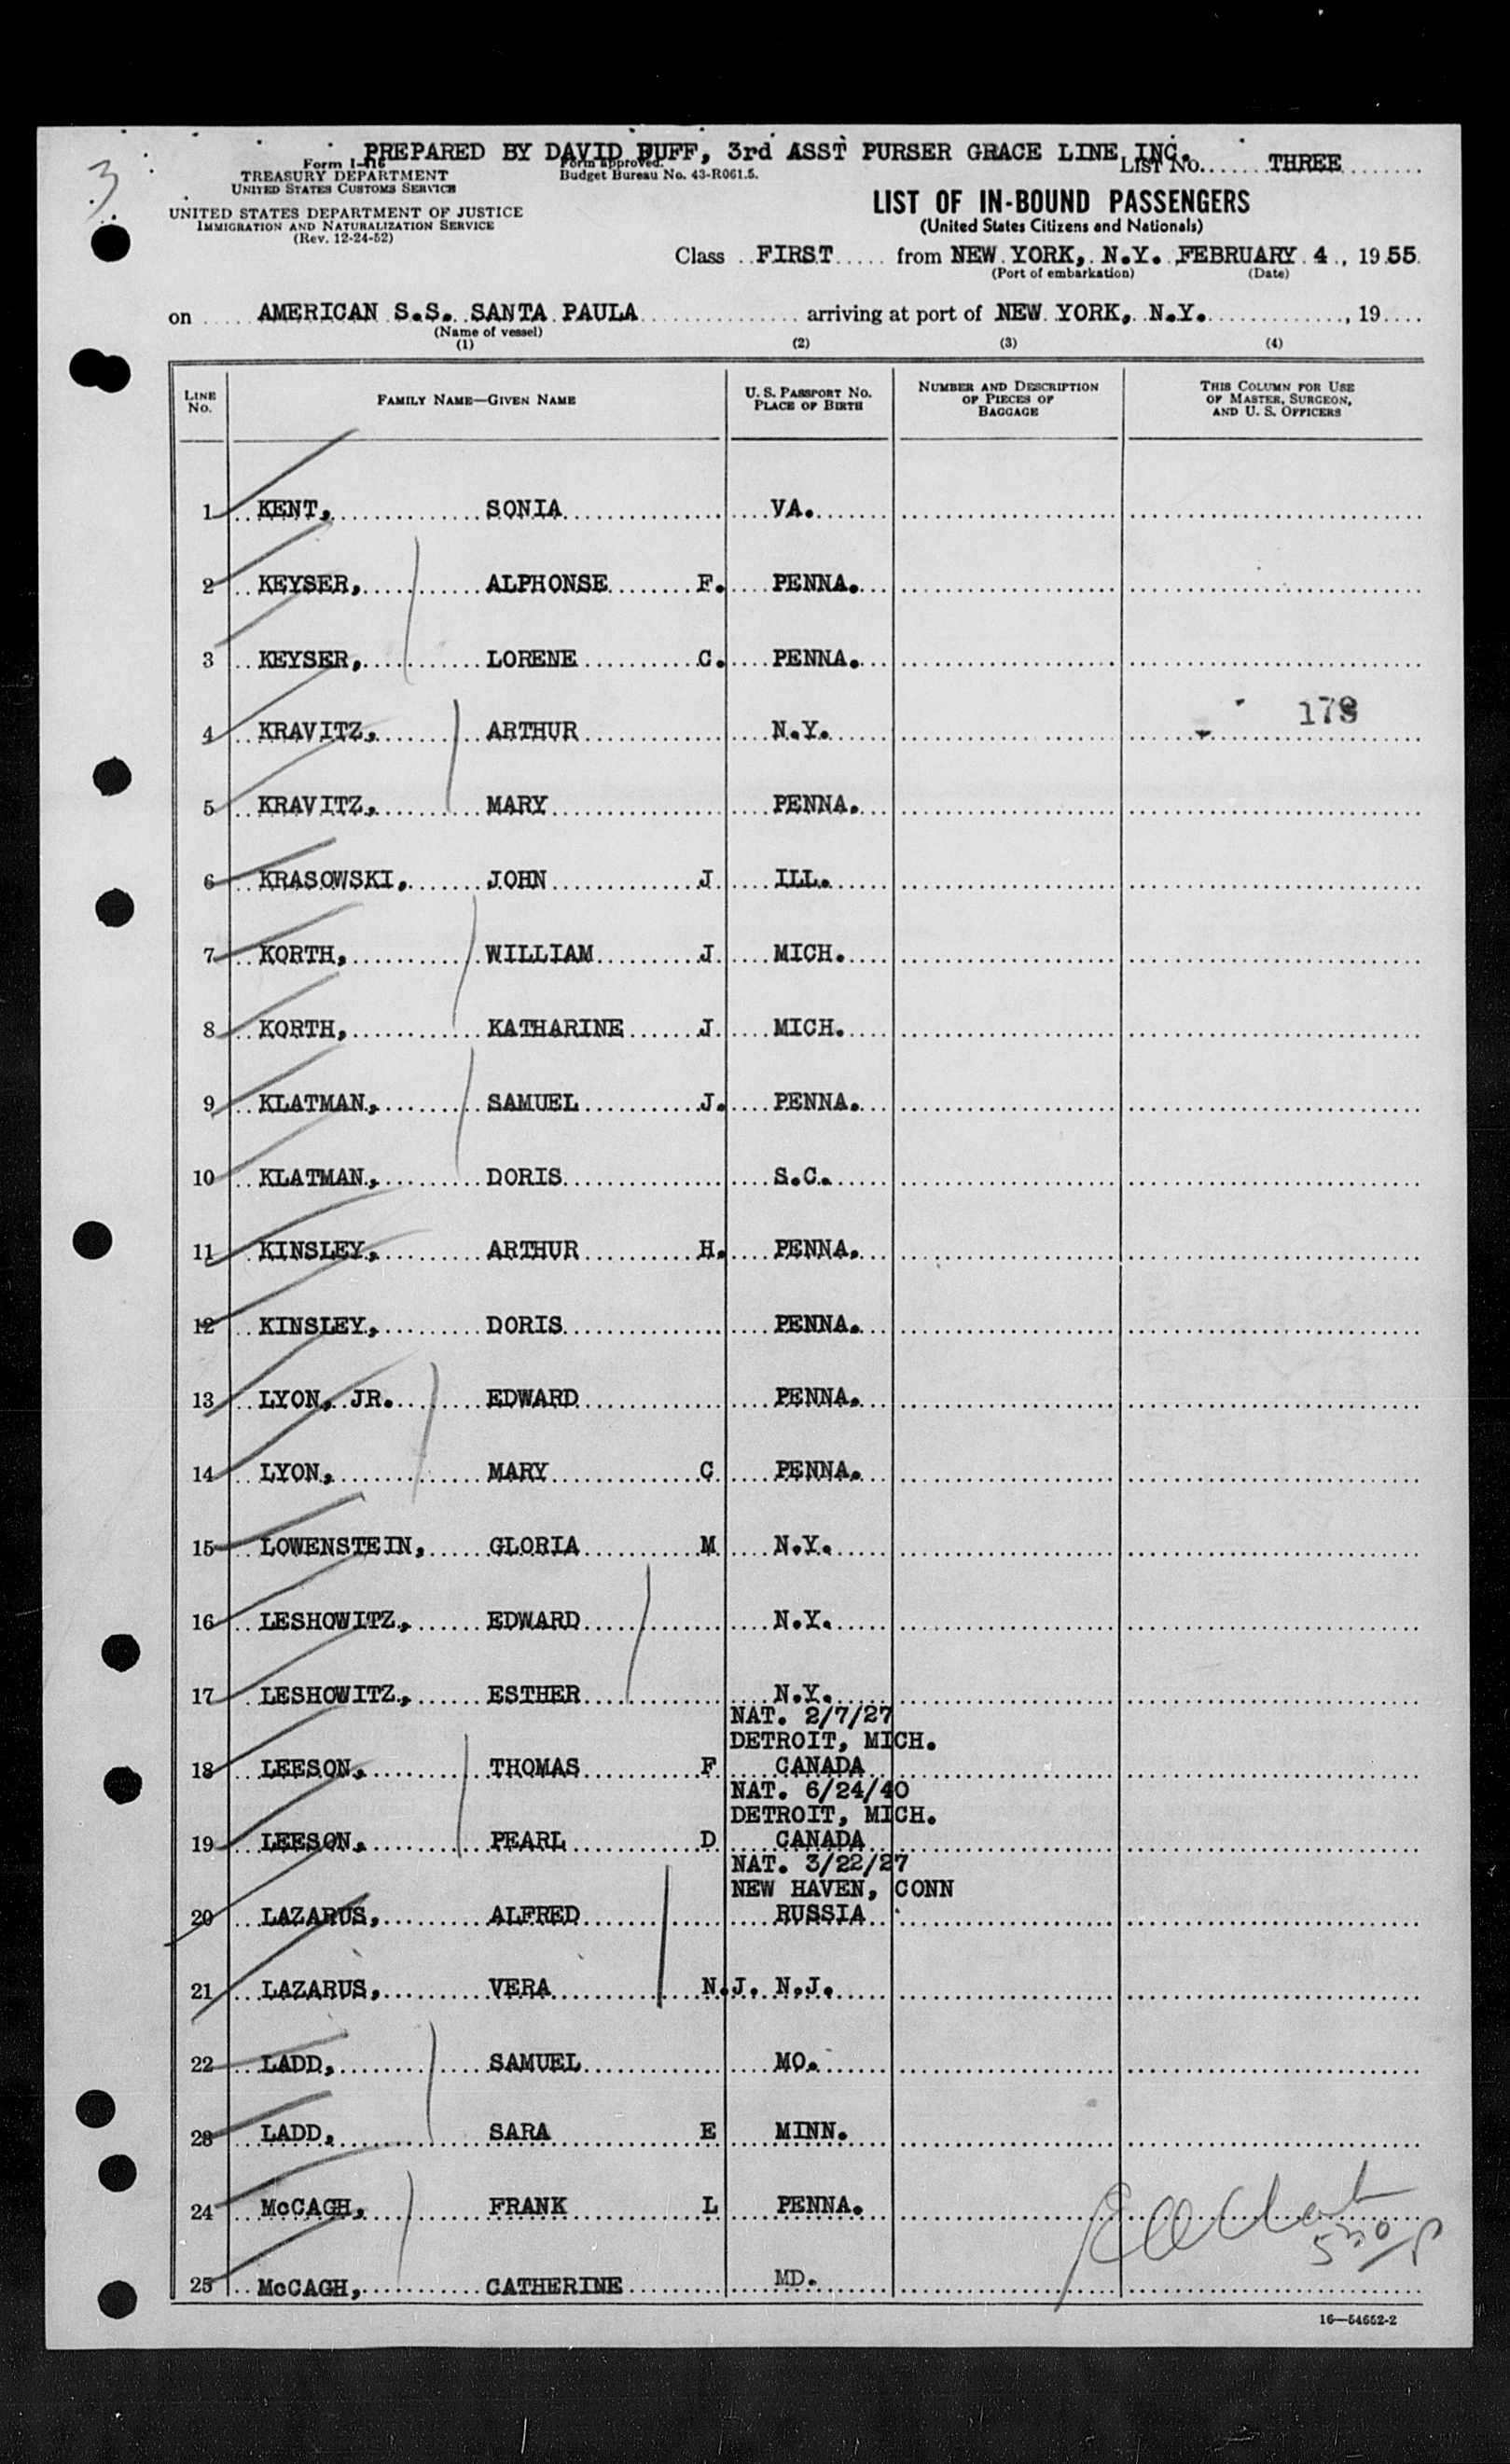 3
PREPARED BY DAVID BUFF, 3rd ASST PURSER GRACE LINE INC.
Form I-416
TREASURY DEPARTMENT
UNITED STATES CUSTOMS SERVICE
Form approved.
Budget Bureau No. 43-R061.5.
List No. THREE
UNITED STATES DEPARTMENT OF JUSTICE
IMMIGRATION AND NATURALIZATION SERVICE
(Rev. 12-24-52)
LIST OF IN-BOUND PASSENGERS
(United States Citizens and Nationals)
Class FIRST from NEW YORK, N.Y. FEBRUARY 4, 1955
(Port of embarkation) (Date)
on AMERICAN S.S. SANTA PAULA arriving at port of NEW YORK, N.Y., 19
(Name of vessel)
(1) (2) (3) (4)
LINE No. FAMILY NAME—GIVEN NAME U. S. PASSPORT NO. PLACE OF BIRTH NUMBER AND DESCRIPTION OF PIECES OF BAGGAGE THIS COLUMN FOR USE OF MASTER, SURGEON, AND U. S. OFFICERS
1 KENT, SONIA VA.
2 KEYSER, ALPHONSE F. PENNA.
3 KEYSER, LORENE C. PENNA.
4 KRAVITZ, ARTHUR N.Y.
5 KRAVITZ, MARY PENNA.
6 KRASOWSKI, JOHN J ILL.
7 KORTH, WILLIAM J MICH.
8 KORTH, KATHARINE J MICH.
9 KLATMAN, SAMUEL J. PENNA.
10 KLATMAN, DORIS S.C.
11 KINSLEY, ARTHUR H. PENNA.
12 KINSLEY, DORIS PENNA.
13 LYON, JR. EDWARD PENNA.
14 LYON, MARY C PENNA.
15 LOWENSTEIN, GLORIA M N.Y.
16 LESHOWITZ, EDWARD N.Y.
17 LESHOWITZ, ESTHER N.Y.
NAT. 2/7/27
DETROIT, MICH.
18 LEESON, THOMAS F CANADA
NAT. 6/24/40
DETROIT, MICH.
19 LEESON, PEARL D CANADA
NAT. 3/22/27
NEW HAVEN, CONN
20 LAZARUS, ALFRED RUSSIA
21 LAZARUS, VERA N.J. N.J.
22 LADD, SAMUEL MO.
23 LADD, SARA E MINN.
24 McCAGH, FRANK L PENNA.
25 McCAGH, CATHERINE MD.
16—54652-2